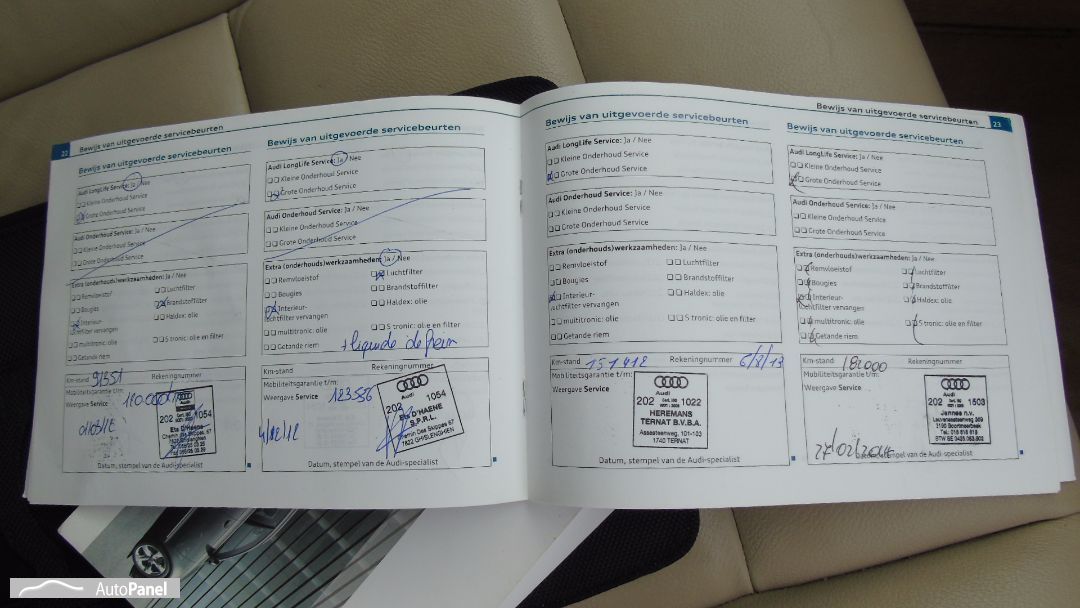 22
Bewijs van uitgevoerde servicebeurten
Bewijs van uitgevoerde servicebeurten
Audi LongLife Service: Ja / Nee
Kleine Onderhoud Service
Grote Onderhoud Service
Audi Onderhoud Service: Ja / Nee
Kleine Onderhoud Service
Grote Onderhoud Service
Extra (onderhouds)werkzaamheden: Ja / Nee
Remvloeistof
Luchtfilter
Bougies
Brandstoffilter
Interieur-
luchtfilter vervangen
Haldex: olie
multitronic: olie
Getande riem
Km-stand 91351
Rekeningnummer
Mobiliteitsgarantie t/m:
Weergave Service
Audi
202 1054
Ets D'HAENE
Bewijs van uitgevoerde servicebeurten
Audi LongLife Service: Ja / Nee
Kleine Onderhoud Service
Grote Onderhoud Service
Audi Onderhoud Service: Ja / Nee
Kleine Onderhoud Service
Grote Onderhoud Service
Extra (onderhouds)werkzaamheden: Ja / Nee
Remvloeistof
Luchtfilter
Bougies
Brandstoffilter
Interieur-
luchtfilter vervangen
Haldex: olie
multitronic: olie
S tronic: olie en filter
Getande riem
+ liquide de frein
Km-stand
Rekeningnummer
Mobiliteitsgarantie t/m:
Weergave Service 123556
Audi
202 1054
Ets D'HAENE
S.P.R.L.
Chemin Des Skippes 67
7822 GHISLENGHEN
Datum, stempel van de Audi-specialist
Datum, stempel van de Audi-specialist
Bewijs van uitgevoerde servicebeurten
23
Bewijs van uitgevoerde servicebeurten
Audi LongLife Service: Ja / Nee
Kleine Onderhoud Service
Grote Onderhoud Service
Audi Onderhoud Service: Ja / Nee
Kleine Onderhoud Service
Grote Onderhoud Service
Extra (onderhouds)werkzaamheden: Ja / Nee
Remvloeistof
Luchtfilter
Bougies
Brandstoffilter
Interieur-
luchtfilter vervangen
Haldex: olie
multitronic: olie
S tronic: olie en filter
Getande riem
Km-stand 151412
Rekeningnummer 6/8/13
Mobiliteitsgarantie t/m:
Weergave Service
Audi
202 1022
HEREMANS
TERNAT B.V.B.A.
Assesteenweg, 101-103
1740 TERNAT
Datum, stempel van de Audi-specialist
Bewijs van uitgevoerde servicebeurten
Audi LongLife Service: Ja / Nee
Kleine Onderhoud Service
Grote Onderhoud Service
Audi Onderhoud Service: Ja / Nee
Kleine Onderhoud Service
Grote Onderhoud Service
Extra (onderhouds)werkzaamheden: Ja / Nee
Remvloeistof
Luchtfilter
Bougies
Brandstoffilter
Interieur-
luchtfilter vervangen
Haldex: olie
multitronic: olie
S tronic: olie en filter
Getande riem
Km-stand
Rekeningnummer
Mobiliteitsgarantie t/m:
Weergave Service
Audi
202 1503
Jannes n.v.
Leuvensesteenweg 369
3190 Boortmeerbeek
27/02/2014
Datum, stempel van de Audi-specialist
AutoPanel